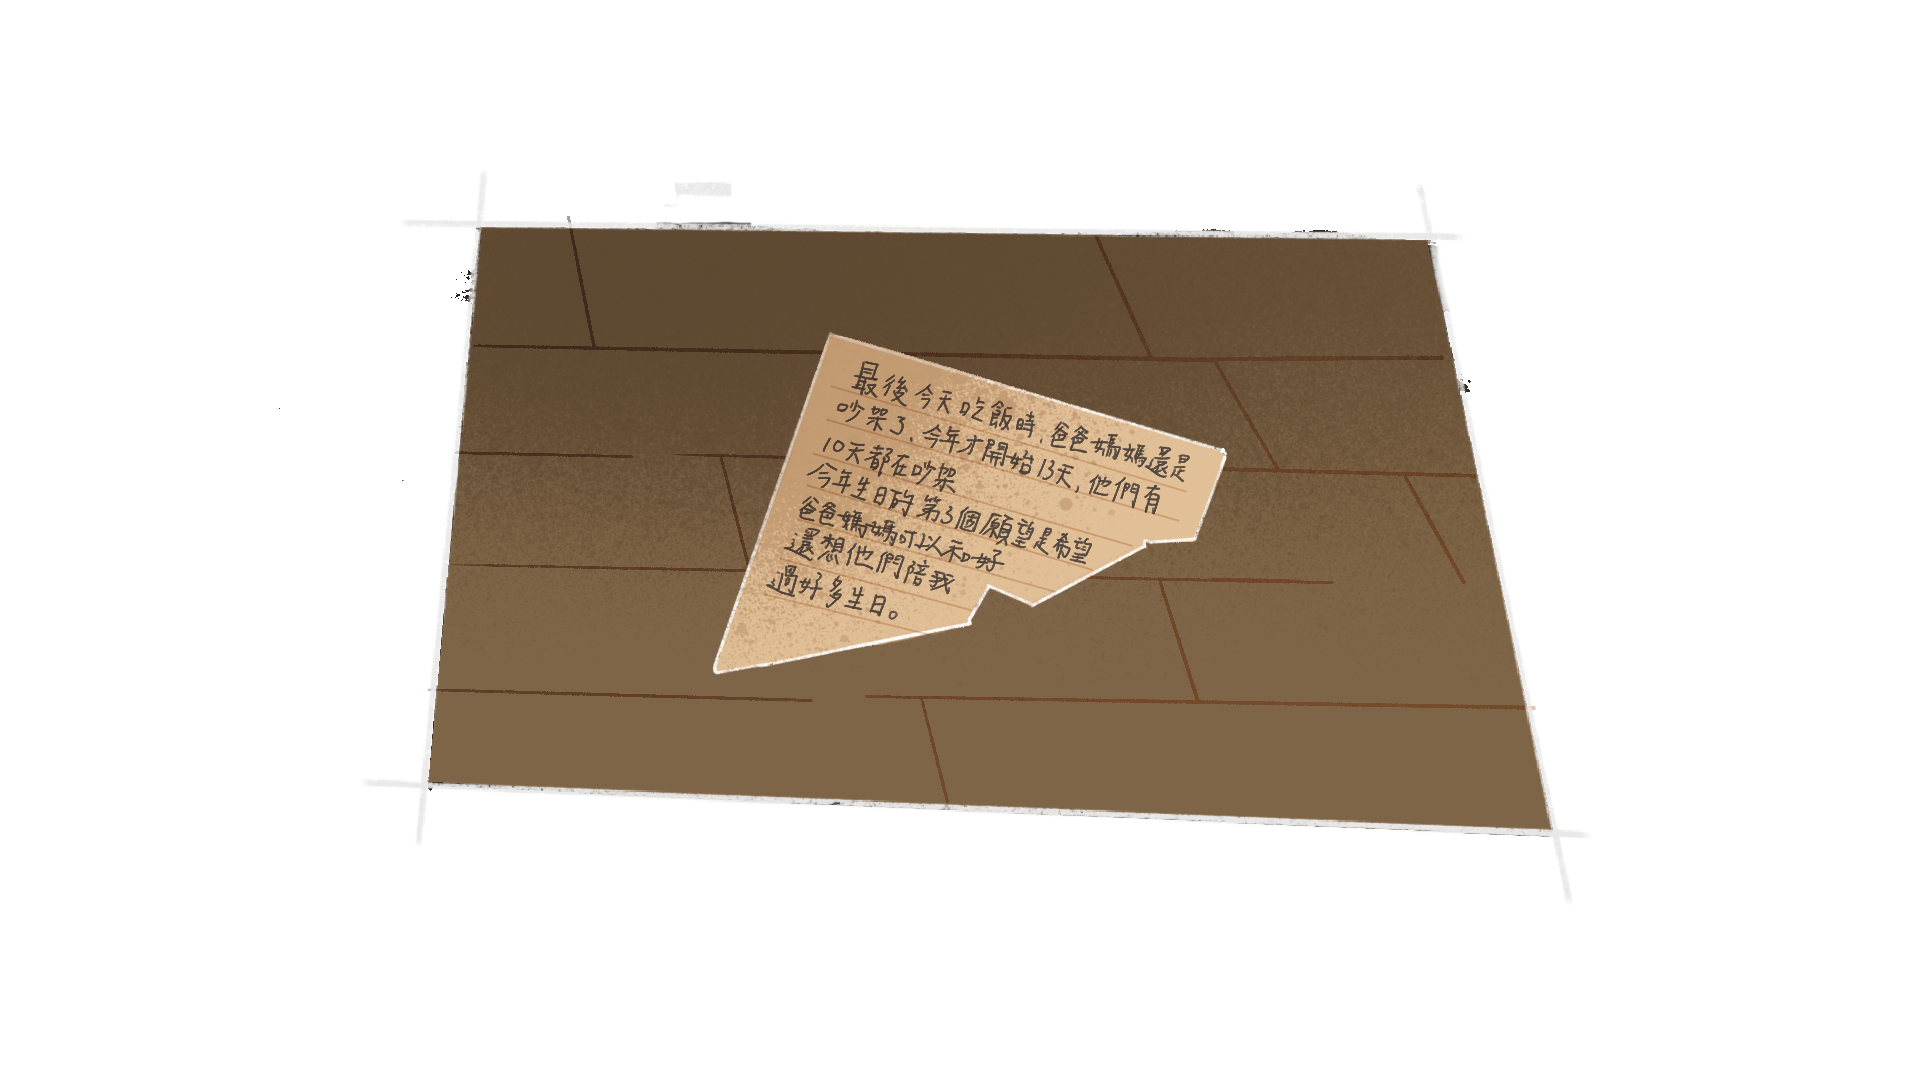 最後今天吃飯時，爸爸媽媽還是
吵架了，今年才開始13天，他們有
10天都在吵架
今年生日的第3個願望是希望
爸爸媽媽可以和好
還想他們陪我
過好多生日。